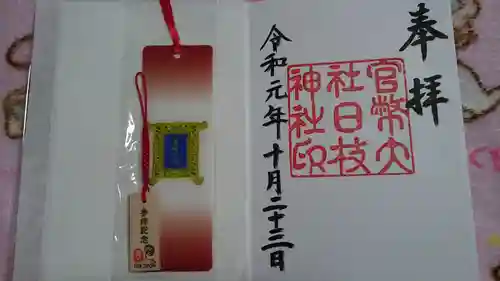 奉拝
官幣大
社日枝
神社印
令和元年十月二十三日
参拝記念